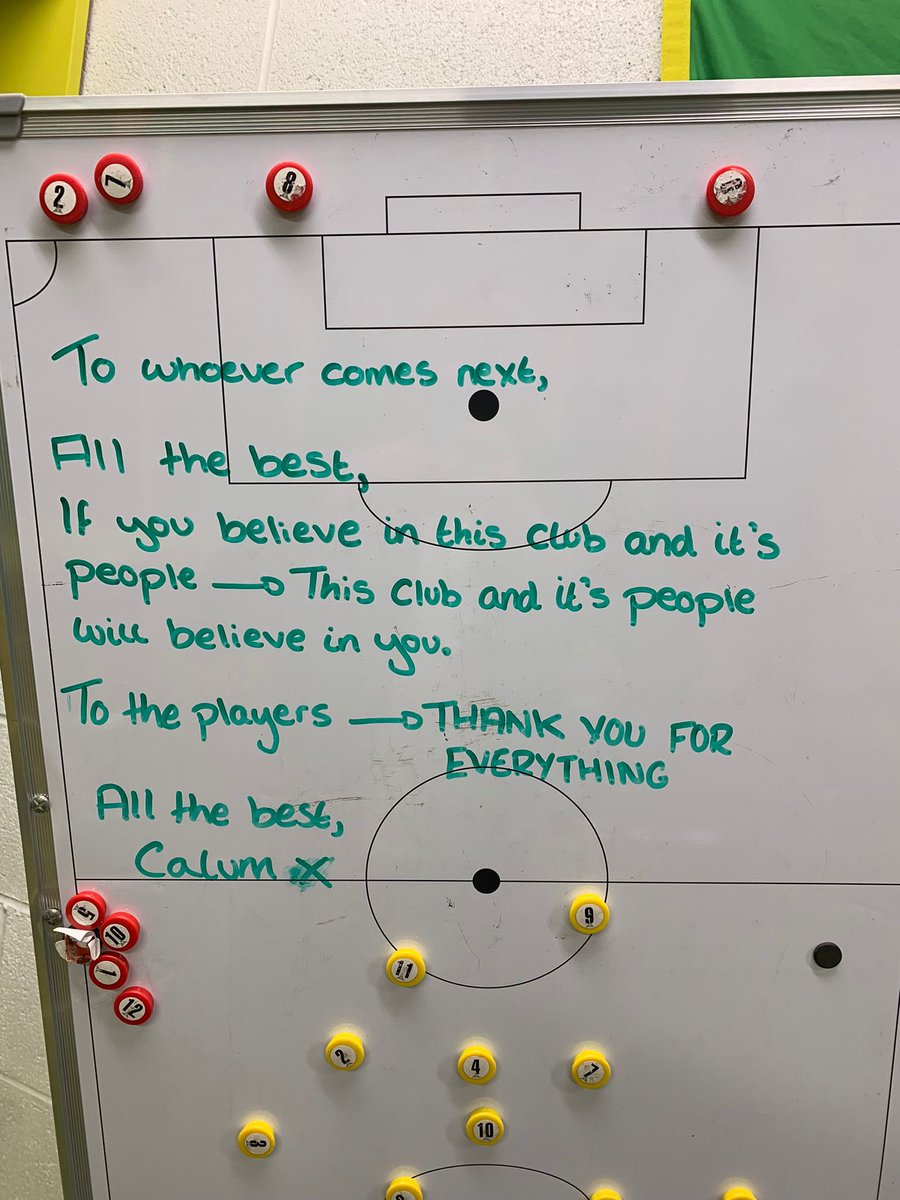 2 7 8
To whoever comes next,
All the best,
If you believe in this club and it's
people → This club and it's people
will believe in you.
To the players → THANK YOU FOR
EVERYTHING
All the best,
Calum x
5
10
1
12
9
11
2 4 7
10